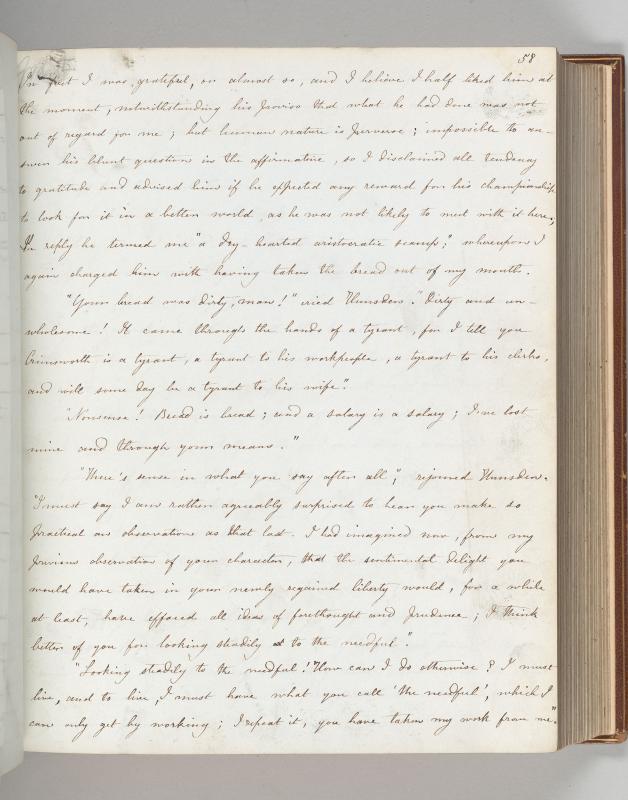 58
In fact I was grateful, or almost so, and I believe I half liked him at
the moment, notwithstanding his proviso that what he had done was not
out of regard for me; but human nature is perverse; impossible to an-
swer his blunt question in the affirmative, so I disclaimed all tendency
to gratitude and advised him if he expected any reward for his championship
to look for it in a better world, as he was not likely to meet with it here;
In reply he termed me "a dry-hearted aristocratic scamp," whereupon I
again charged him with having taken the bread out of my mouth.
"Your bread was dirty, man!" cried Hunsden. "Dirty and un-
wholesome! It came through the hands of a tyrant, for I tell you
Crimsworth is a tyrant, a tyrant to his workpeople, a tyrant to his clerks,
and will some day be a tyrant to his wife".
"Nonsense! Bread is bread; and a salary is a salary; I've lost
mine and through your means."
"There's sense in what you say after all", rejoined Hunsden.
"I must say I am rather agreeably surprised to hear you make so
practical an observation as that last. I had imagined now, from my
previous observation of your character, that the sentimental delight you
would have taken in your newly regained liberty would, for a while
at least, have effaced all ideas of forethought and prudence; I think
better of you for looking steadily to the needful".
"Looking steadily to the needful! How can I do otherwise? I must
live, and to live, I must have what you call 'the needful', which I
can only get by working; I repeat it, you have taken my work from me"